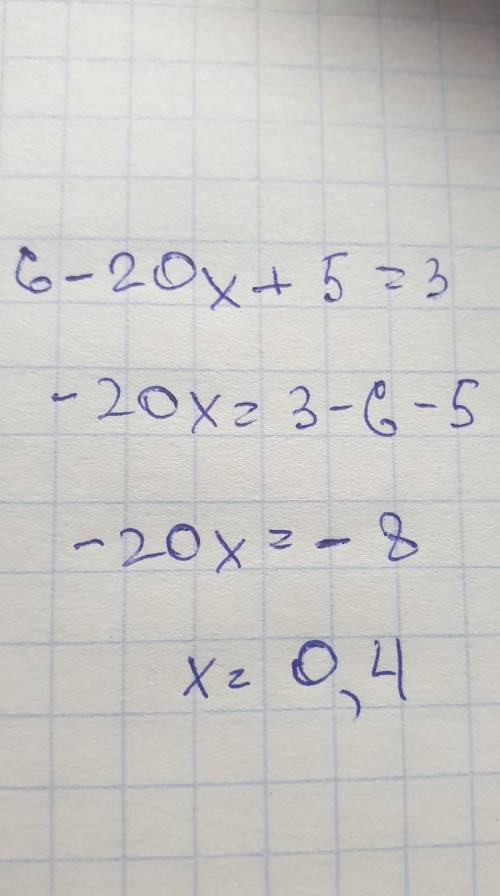 6 - 20x + 5 = 3
-20x = 3 - 6 - 5
-20x = - 8
x = 0,4